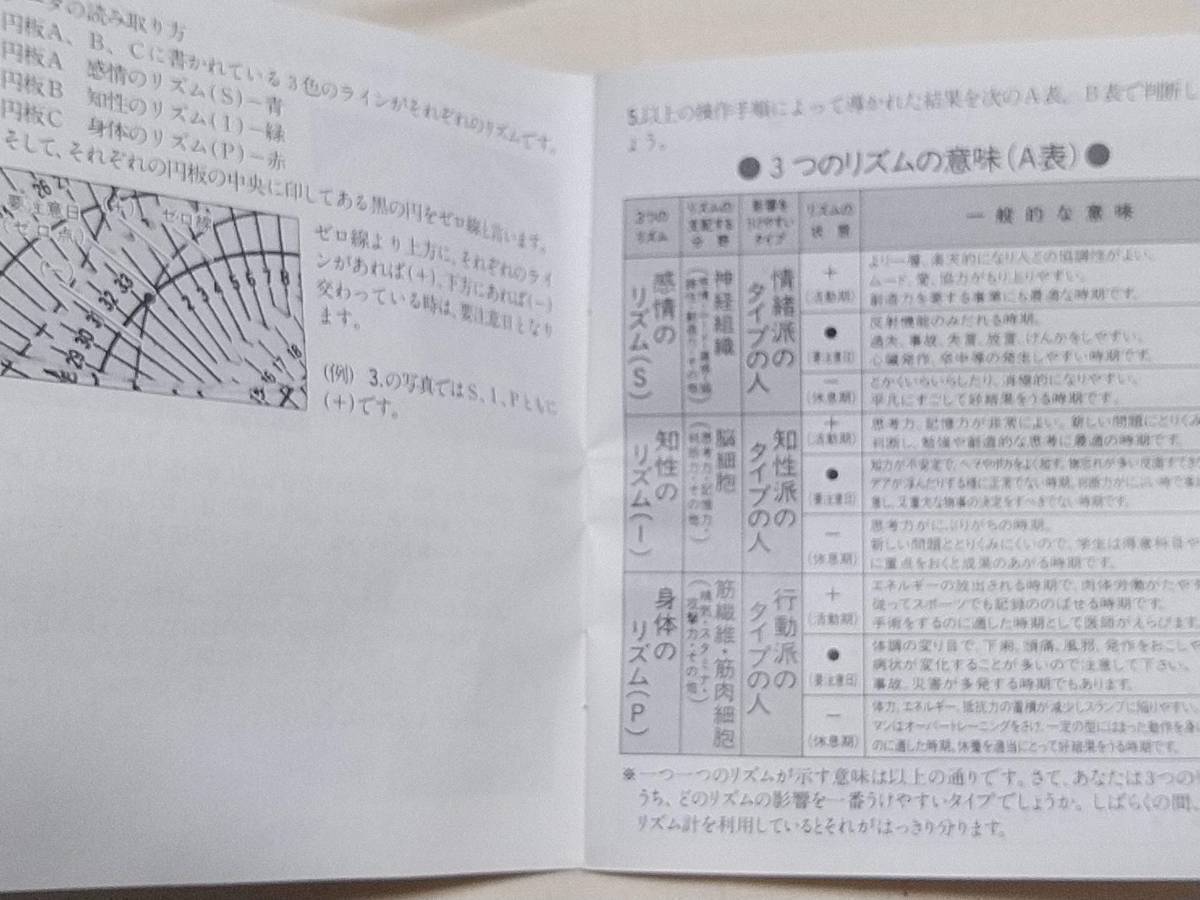 タの読み取り方
円板A、B、Cに書かれている3色のラインがそれぞれのリズムです。
円板A 感情のリズム(S)－青
円板B 知性のリズム(I)－緑
円板C 身体のリズム(P)－赤
そして、それぞれの円板の中央に印してある黒の円をゼロ線と言います。
要注意日
(ゼロ点)
(+)
ゼロ線
(-)
26 27
33
32
31
30
29
1 2 3 4 5 6 7 8
16 17 18
ゼロ線より上方に、それぞれのライ
ンがあれば(+)、下方にあれば(-)
交わっている時は、要注意日となり
ます。
(例) 3.の写真ではS、I、Pともに
(+)です。
5.以上の操作手順によって導かれた結果を次のA表、B表で判断し
ょう。
●3つのリズムの意味(A表)●
3つの
リズム
リズムの
支配する
分野
影響を
うけやすい
タイプ
リズムの
状態
一般的な意味
感情の
リズム(S)
神経組織
情緒派の
タイプの人
+
(活動期)
より一層、楽天的になり人との協調性がよい。
ムード、愛、協力がもり上りやすい。
創造力を要する事業にも最適な時期です。
●
(要注意日)
反射機能のみだれる時期。
過失、事故、失言、放言、けんかをしやすい。
心臓発作、卒中等の発生しやすい時期です。
－
(休息期)
とかくいらいらしたり、消極的になりやすい。
平凡にすごして好結果をうる時期です。
知性の
リズム(I)
脳細胞
(思考力・記憶力・
判断力・その他)
知性派の
タイプの人
+
(活動期)
思考力、記憶力が非常によい。新しい問題にとりくみ
判断し、勉強や創造的な思考に最適の時期です。
●
(要注意日)
知力が不安定で、ヘマやポカをよく起す。物忘れが多い反面すてき
デアが浮んだりする様に正常でない時期。判断力がにぶい時で事
意し、又重大な物事の決定をすべきでない時期です。
－
(休息期)
思考力がにぶりがちの時期。
新しい問題ととりくみにくいので、学生は得意科目や
に重点をおくと成果のあがる時期です。
身体の
リズム(P)
筋繊維・筋肉細胞
(精気・スタミナ・
攻撃力・その他)
行動派の
タイプの人
+
(活動期)
エネルギーの放出される時期で、肉体労働がたやす
従ってスポーツでも記録ののばせる時期です。
手術をするのに適した時期として医師がえらびます。
●
(要注意日)
体調の変り目で、下痢、頭痛、風邪、発作をおこしや
病状が変化することが多いので注意して下さい。
事故、災害が多発する時期でもあります。
－
(休息期)
体力、エネルギー、抵抗力の蓄積が減少しスランプに陥りやすい。
マンはオーバートレーニングをさけ、一定の型にはまった動作を身に
のに適した時期。休養を適当にとって好結果をうる時期です。
※一つ一つのリズムが示す意味は以上の通りです。さて、あなたは3つの
うち、どのリズムの影響を一番うけやすいタイプでしょうか。しばらくの間、
リズム計を利用しているとそれがはっきり分ります。